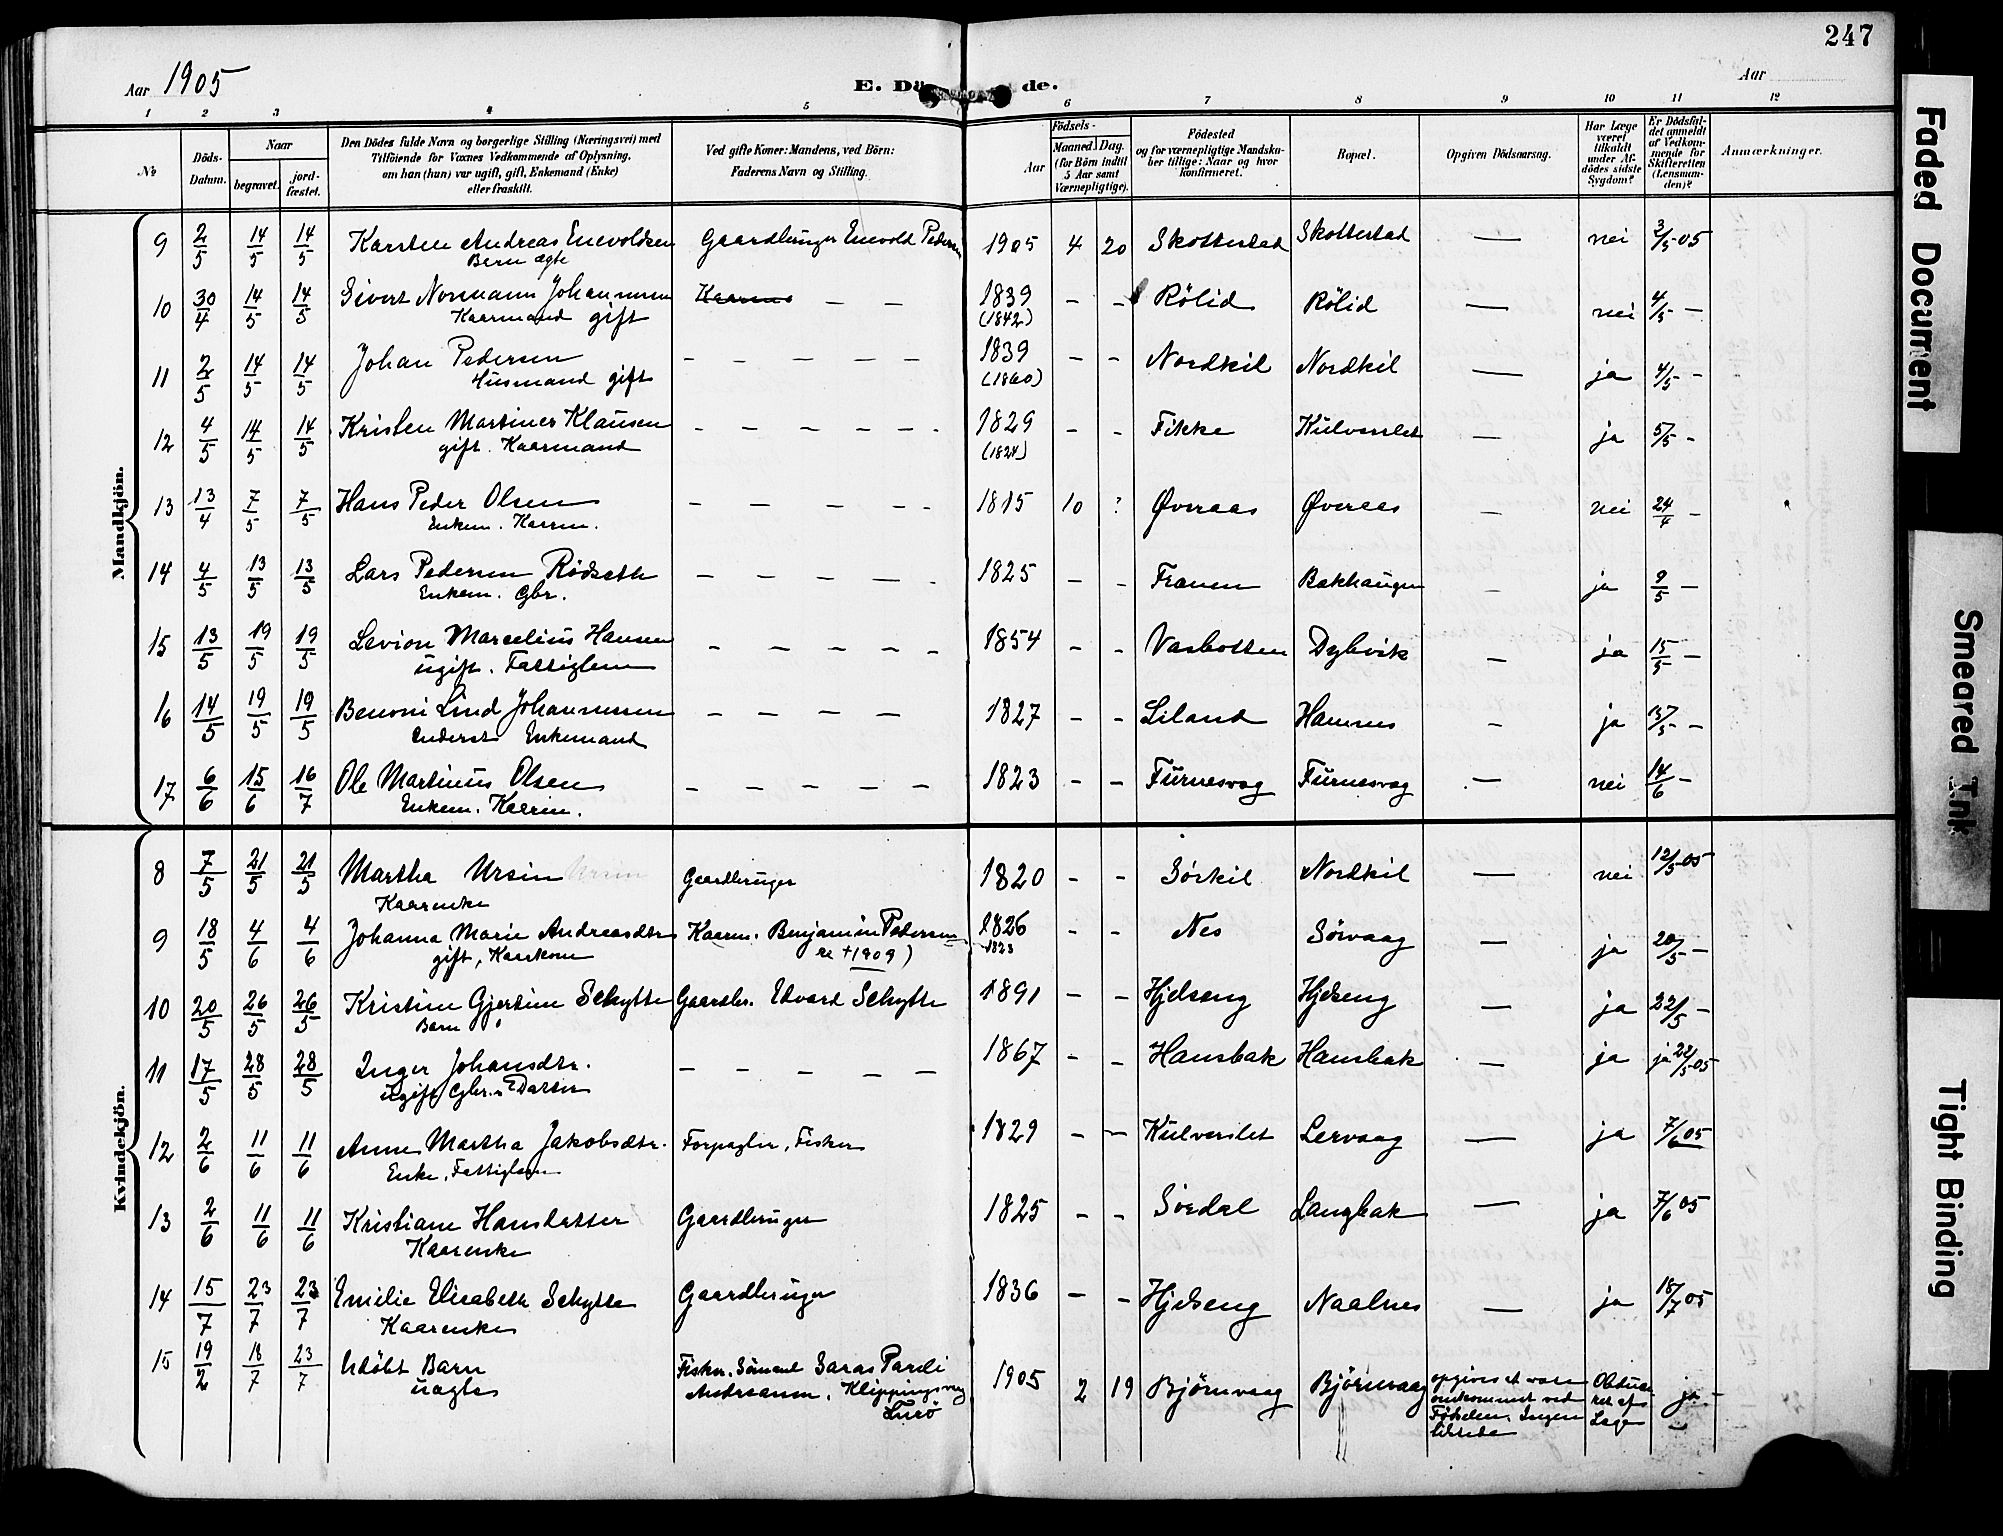 247
Aar 1905
E. Dö de.
Aar
1 2 3 4 5 6 7 8 9 10 11 12
No
Döds-Datum.
Naar
begravet.
jord-fæstet.
Den Dödes fulde Navn og borgerlige Stilling (Næringsvei) med
Tilföiende for Voxnes Vedkommende af Oplysning,
om han (hun) var ugift, gift, Enkemand (Enke)
eller fraskilt.
Ved gifte Koner: Mandens, ved Börn:
Faderens Navn og Stilling.
Födsels-
Aar
Maaned.
Dag.
(for Börn indtil
5 Aar samt
Værnepligtige).
Födested
og for værnepligtige Mandska-
ber tillige: Naar og hvor
konfirmeret.
Bopæl.
Opgiven Dödsaarsag.
Har Læge
været
tilkaldt
under Af-
dödes sidste
Sygdom?
Er Dödsfal-
det anmeldt
af Vedkom-
mende for
Skifteretten
(Lensman-
den)?
Anmærkninger.
Mandkjön.
9 2/5 14/5 14/5 Karsten Andreas Enevoldsen Gaardbruger Enevold Pedersen 1905 4 20 Skottestad Skottestad — nei 3/5 05
Barn ægte
10 30/4 14/5 14/5 Sivert Normann Johannesen Kaarma — — 1839 – – Rölid Rölid — nei 4/5 –
Kaarmand gift (1842)
11 2/5 14/5 14/5 Johan Pedersen – – – – – 1839 – – Nordkil Nordkil — ja 4/5 –
Husmand gift (1860)
12 4/5 14/5 14/5 Kristen Martiner Klausen – – – – – 1829 – – Fikke Kulverslet — ja 5/5 –
gift. Kaarmand (1824)
13 13/4 7/5 7/5 Hans Peder Olsen – – – – – 1815 10 ? Øveraas Øveraas – nei 24/4 –
Enkem. Kaarm.
14 4/5 13/5 13/5 Lars Pedersen Rödseth – – – – – 1825 – – Franen Bakhaugen – ja 9/5 –
Enkem. Gbr.
15 13/5 19/5 19/5 Levion Marcelius Hansen – – – – – 1854 – – Vasbotten Dybvik – ja 15/5 –
ugift. Fattiglem
16 14/5 19/5 19/5 Benoni Lind Johannesen – – – – 1827 – – Liland Hamnes – ja 15/5 –
Inderst Enkemand
17 6/6 15/6 16/7 Ole Martinus Olsen – – – – – 1823 – – Furnesvag Furnesvag — nei 14/6 –
Enkem. Kaarm.
Kvindekjön.
8 7/5 21/5 21/5 Martha Ursin Gaardbruger 1820 – – Sörkil Nordkil — nei 12/5 05
Kaarenke
9 18/5 4/6 4/6 Johanna Marie Andreasdtr Kaarm. Benjamin Pedersen 1826 – – Nes Sörvaag — ja 20/5 –
gift, Kaarkone † 1909) 1823
10 20/5 26/5 26/5 Kristine Gjertine Schytte Gaardbr. Edvard Schytte 1891 – – Hjelseng Hjelseng — ja 22/5 –
Barn
11 17/5 28/5 28/5 Inger Johansdtr. – – – – – 1867 – – Hansbak Hansbak — ja ja 22/5 05
ugift, Gbr.s Datter
12 2/6 11/6 11/6 Anne Martha Jakobsdtr. Forpagter, Fisker 1829 – – Kulverslet Lervaag — ja 7/6 05
Enke, Fattiglem
13 2/6 11/6 11/6 Kristiane Hansdatter Gaardbruger 1825 – – Sördal Langbak — ja 7/6 05
Kaarenke
14 15/7 23/7 23/7 Emilie Elisabeth Schytte Gaardbruger 1836 – – Hjelseng Naalnes — ja 18/7 05
Kaarenke
15 19/2 18/7 23/7 Udöbt Barn Fisker, Sömand Saras Pareli 1905 2 19 Björnvaag Björnvaag opgives at være
uægte Andreassen, Klippingsvag omkommet ved
Turö Födselen. Ingen
Obduc-
ret af
Læge
ja –
Faded Document
Smeared Ink
Tight Binding